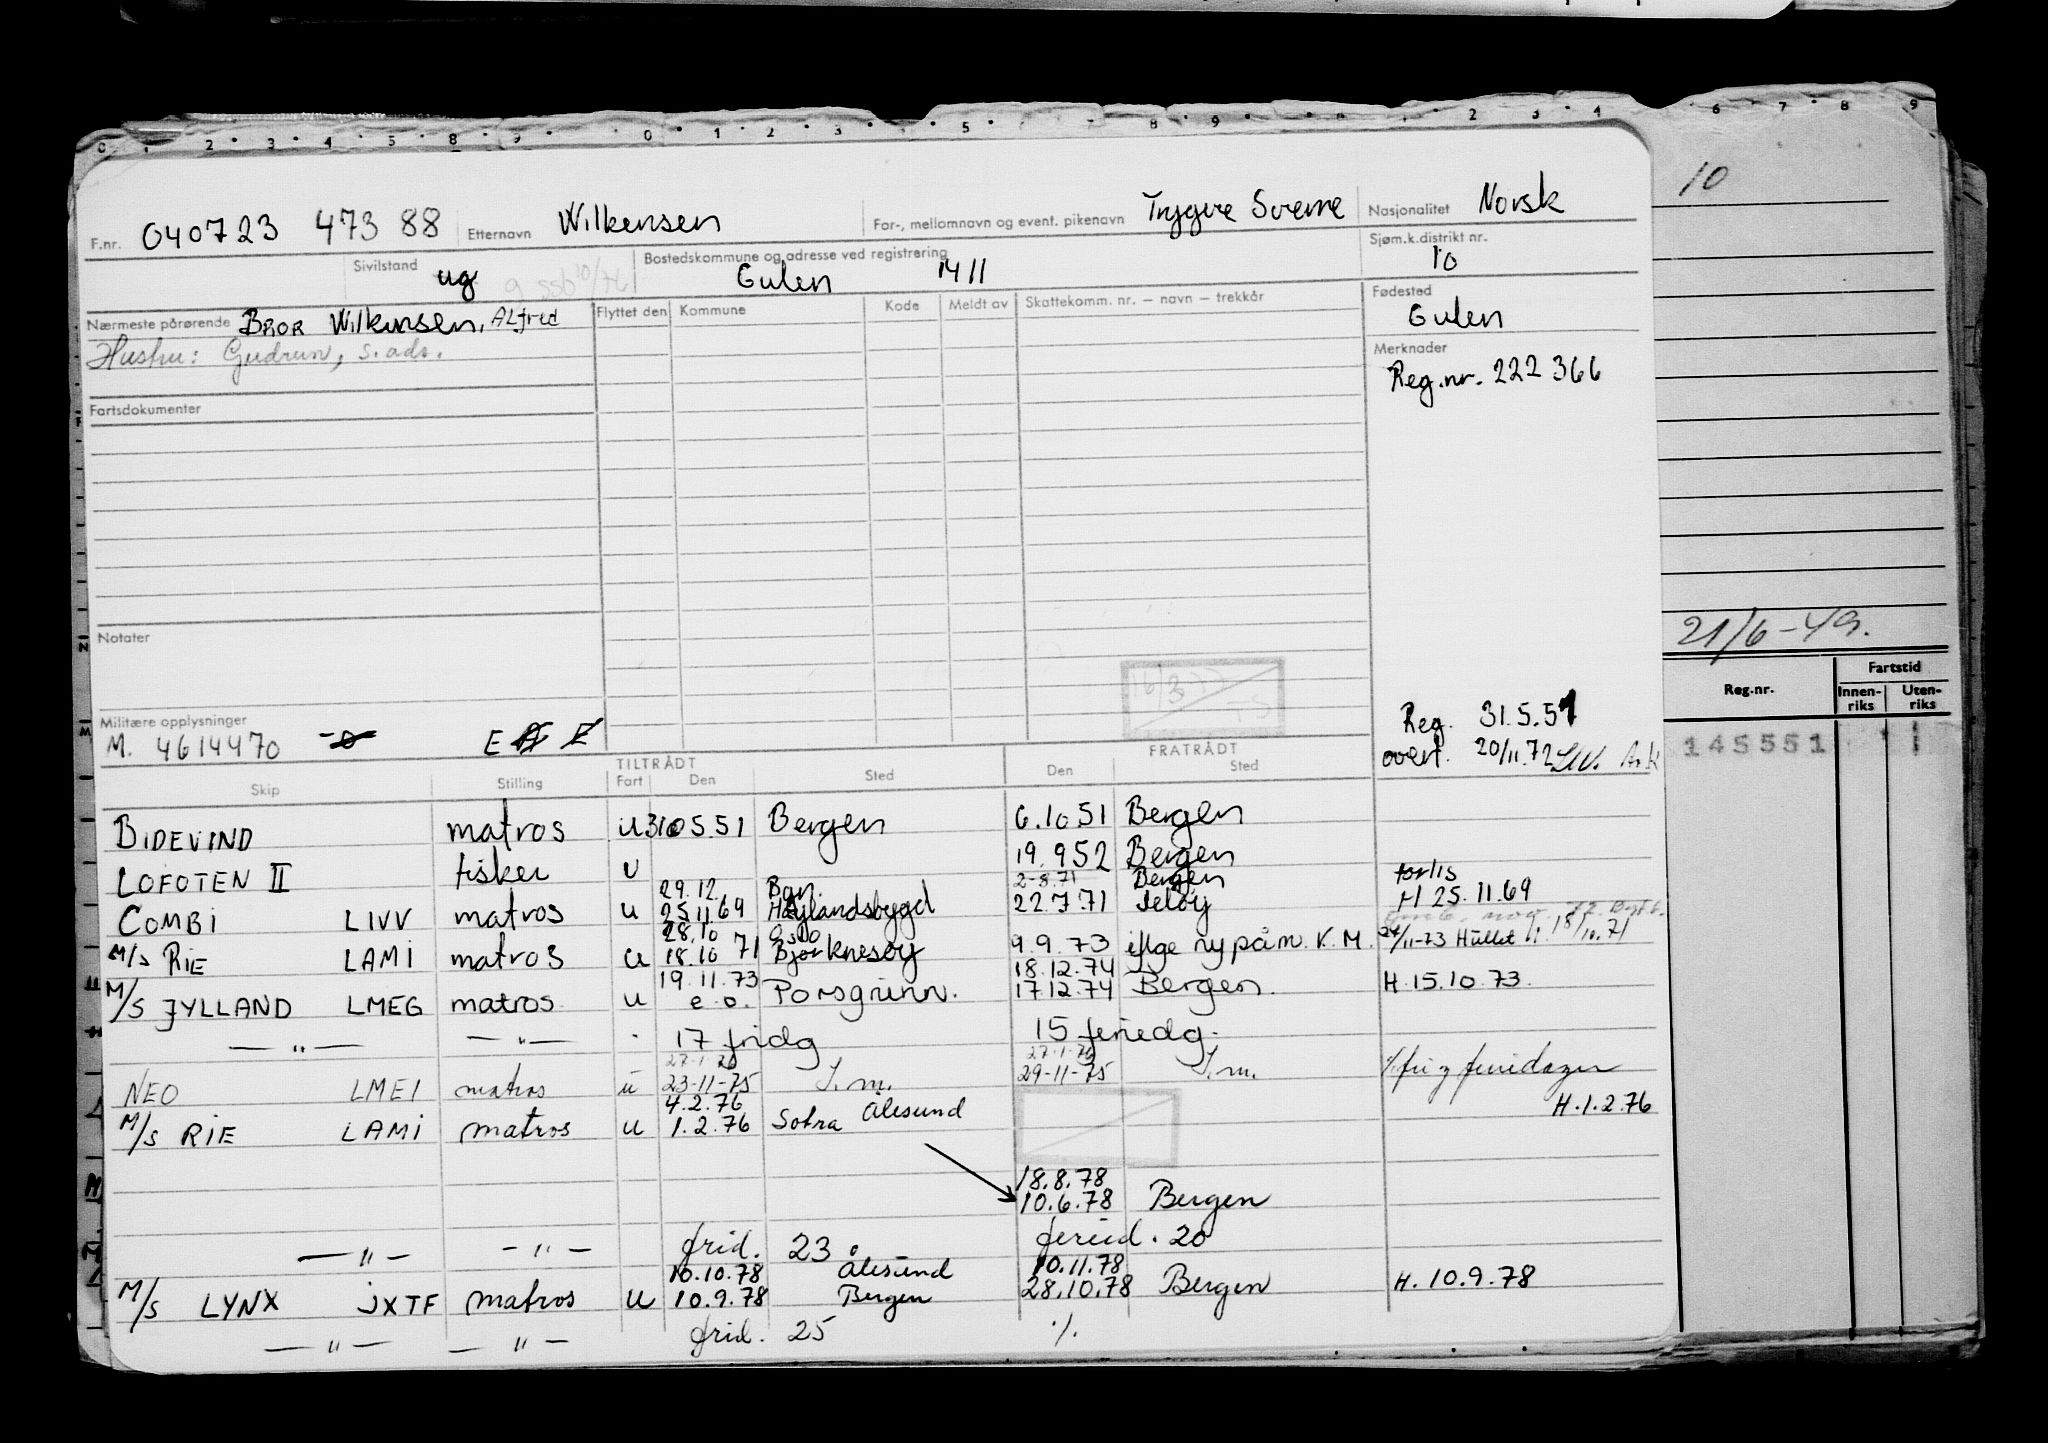 10
F.nr. 040723 473 88 Etternavn Wilkensen For-, mellomnavn og event. pikenavn Tryggve Sverre Nasjonalitet Norsk
Sivilstand ug g ssb 10/76 Bostedskommune og adresse ved registrering Gulen 1411 Sjøm.k.distrikt nr. 10
Nærmeste pårørende Bror Wilkensen, Alfred Flyttet den Kommune Kode Meldt av Skattekomm. nr. — navn — trekkår Fødested Gulen
Hustru: Gudrun, s. adr.
Merknader
Reg.nr. 222 366
Fartsdokumenter
Notater
21/6-49.
Fartstid
Reg.nr. Innen-riks Uten-riks
145551
16/3 77
TS
Militære opplysninger
M. 4614470 E
Reg. 31.5.51
overf. 20/11.72
TILTRÅDT FRATRÅDT
Skip Stilling Fart Den Sted Den Sted
BIDEVIND matros u 31.05.51 Bergen 6.10.51 Bergen
LOFOTEN II fisker u 19.9.52 Bergen
29.12. Bgn. 2-8.71 Bergen forlis
COMBI LIVV matros u 25.11.69 Høylandsbygd 22.7.71 H 25.11.69
28.10 Oslo
M/S RIE LAMI matros u 18.10 71 Bjorknesøy 9.9.73 iflge ny påm. K.M. 24/11-73 18/10.71
19.11.73 18.12.74
M/S JYLLAND LMEG matros u e.o. Porsgrunn. 17.12.74 Bergen. H.15.10.73.
— " — — " — 17 fridg 15 feriedg.
27.1.76 27.1.76
NEO LMEI matros u 23-11-75 S.m. 29-11-75 S.m. % fri og feriedager
4.2.76 Ålesund H.1.2.76
M/S RIE LAMI matros u 1.2.76 Sotra
18.8.78
10.6.78 Bergen
— " — — " — frid. 23 feried. 20
10.10.78 Ålesund 10.11.78
M/S LYNX JXTF matros u 10.9.78 Bergen 28.10.78 Bergen H. 10.9.78
— " — — " — frid. 25 %